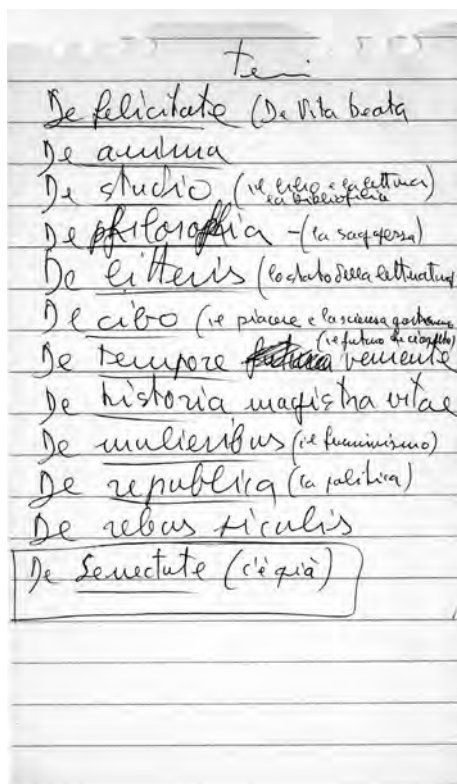 temi
De felicitate (De Vita beata
De anima
De studio (il libro e la lettura
la bibliofilia)
De philosophia - (la saggezza)
De litteris (lo stato della letteratura
De cibo (il piacere e la scienza
De tempore veniente (il futuro che ci aspetta)
De historia magistra vitae
De mulieribus (il femminismo)
De republica (la politica)
De rebus siculis
De Senectute (c'è già)